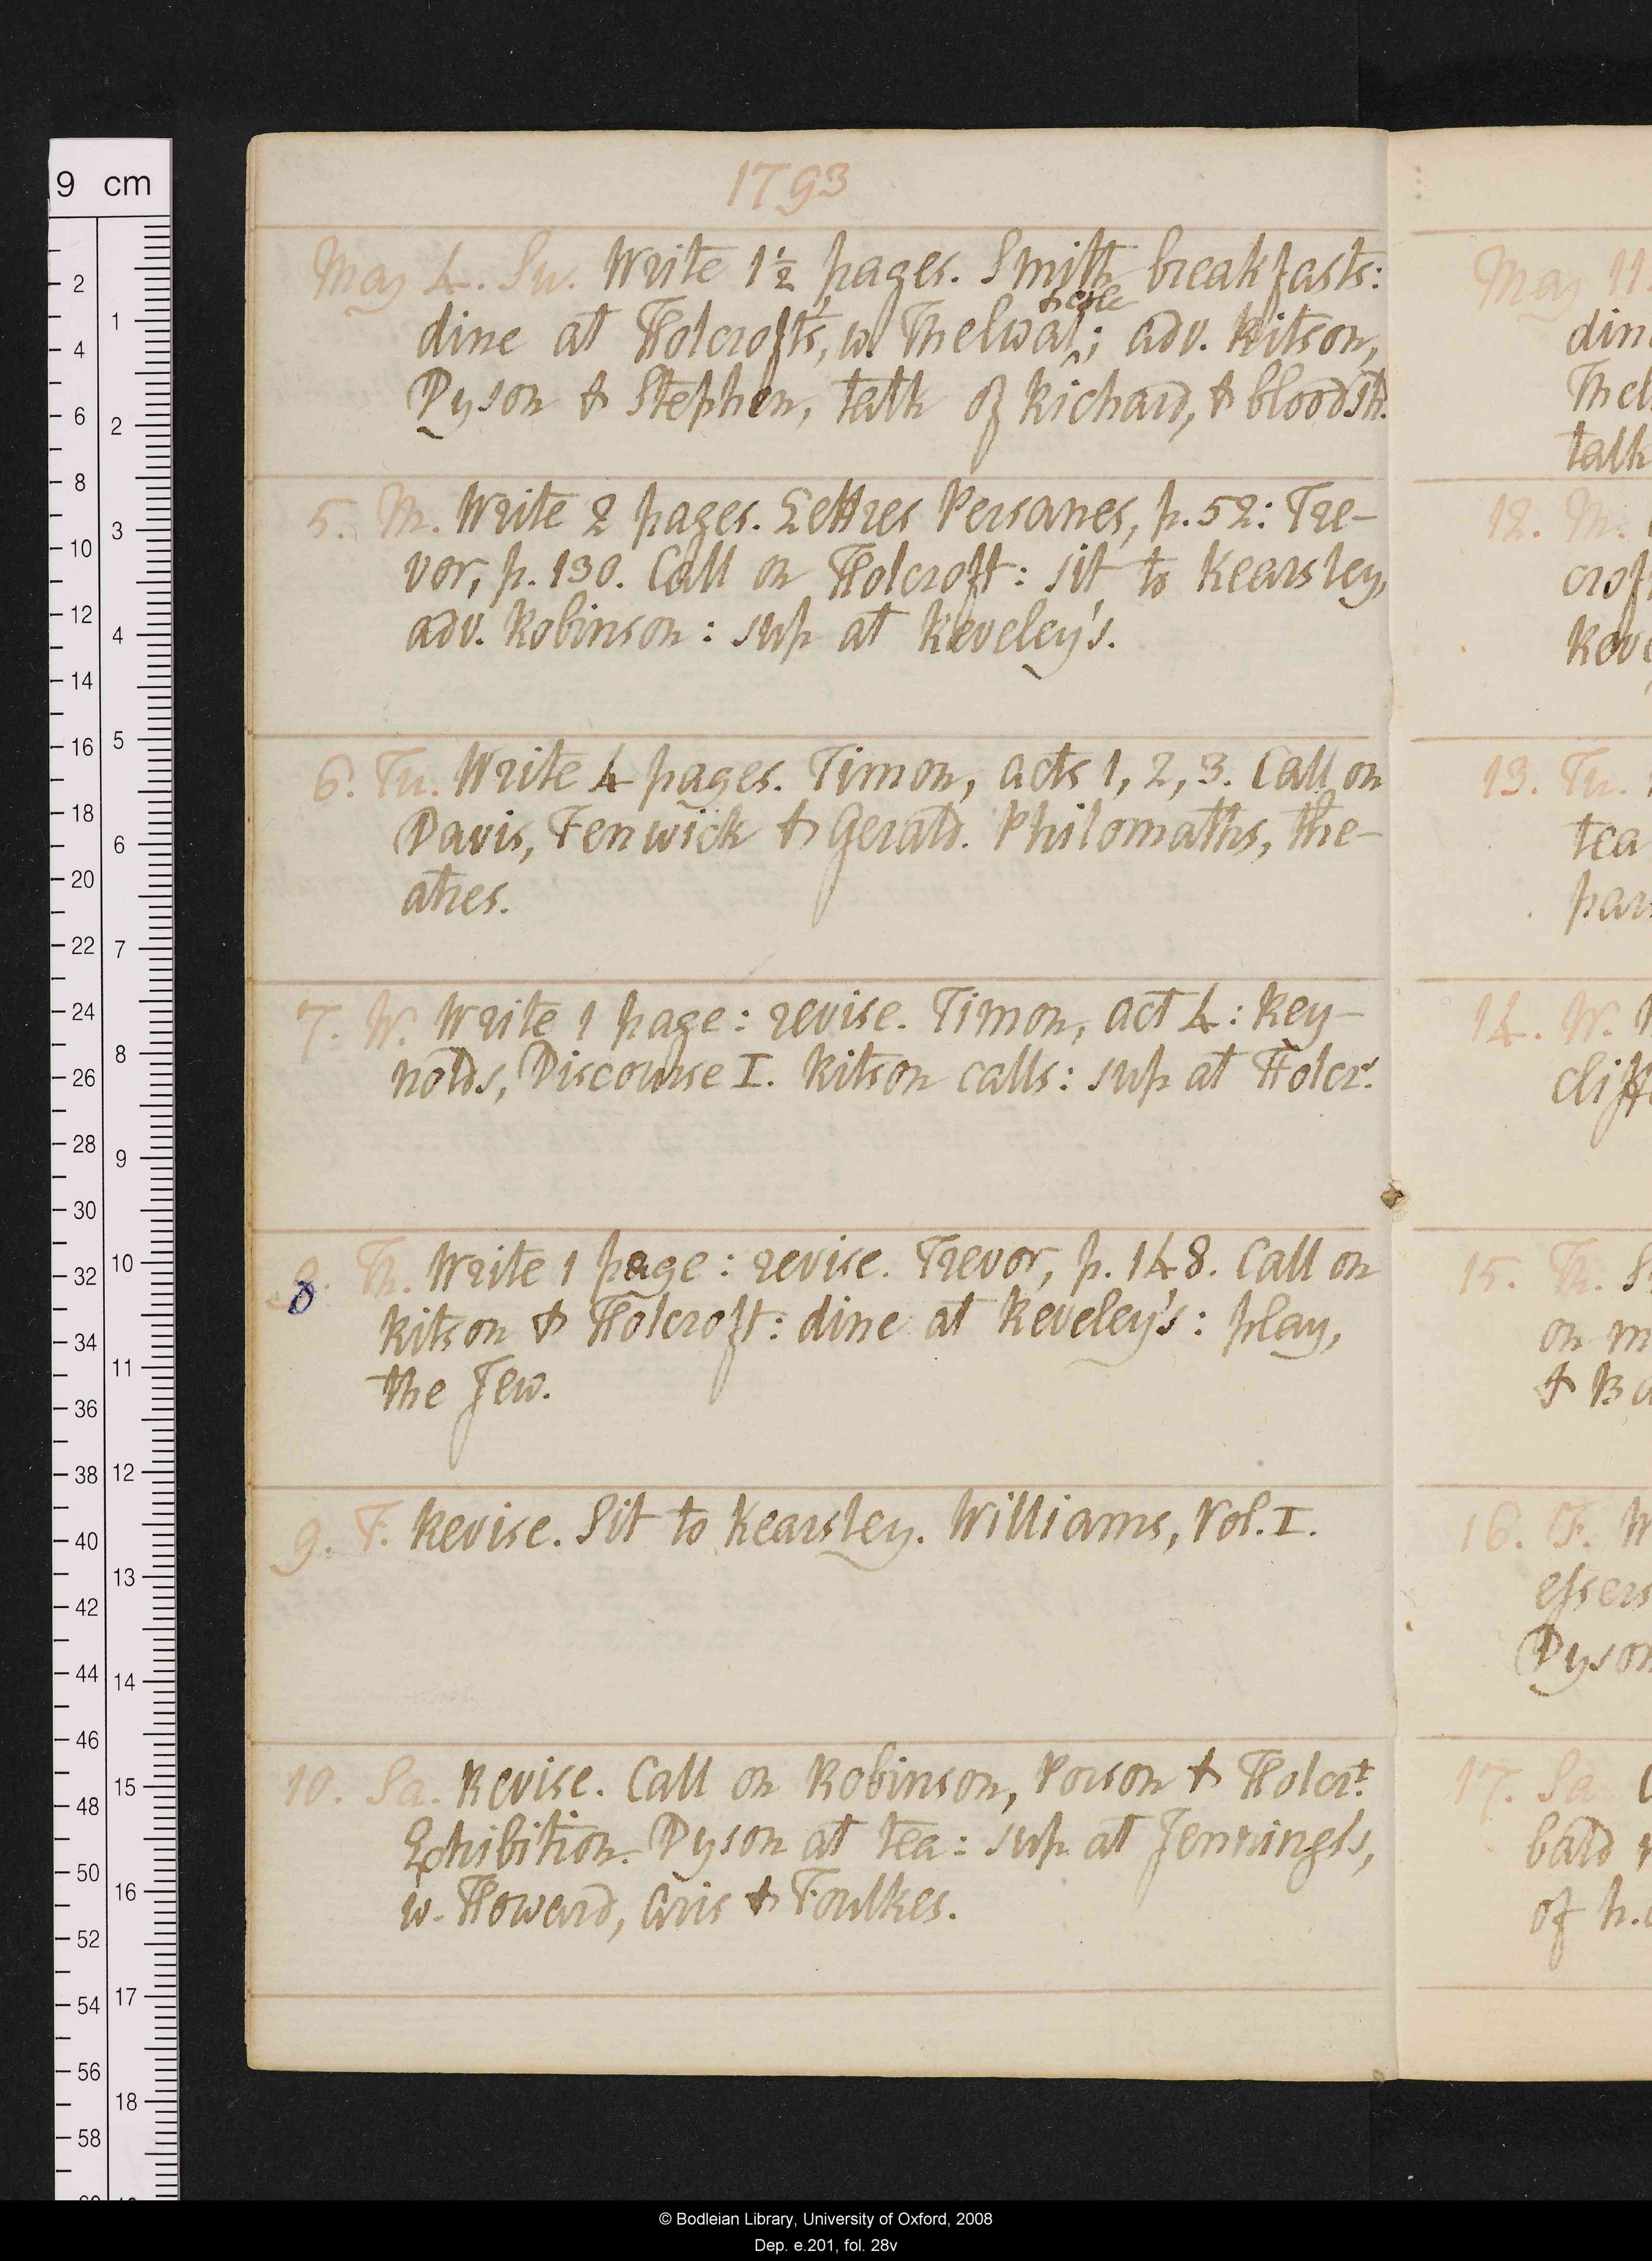 1793
May 4. Su. Write 1½ pages. Smith breakfasts:
dine at Holcroft's, w. Thelwal & wife; adv. Ritson,
Dyson & Stephen, talk of Richard, & bloodsh.
5. M. Write 2 pages. Lettres Persanes, p. 52: Tre-
vor, p. 130. Call on Holcroft: sit to Kearsley,
adv. Robinson: sup at Reveley's.
6. Tu. Write 4 pages. Timon, acts 1, 2, 3. Call on
Davis, Fenwick & Gerald. Philomaths, the-
atres.
7. W. Write 1 page: revise. Timon, act 4: Rey-
nolds, Discourse I. Ritson calls: sup at Holcr's.
8. Th. Write 1 page: revise. Trevor, p. 148. Call on
Ritson & Holcroft: dine at Reveley's: play,
the Jew.
9. F. Revise. Sit to Kearsley. Williams, Vol. I.
10. Sa. Revise. Call on Robinson, Porson & Holcrt.
Exhibition. Dyson at tea: sup at Jennings's,
w. Howard, Aris & Foulkes.
May 11.
din
Thel
talk
12. M.
crof
Reve
13. Tu.
tea
par
14. W.
cliff
15. Th. S
on m
& Ba
16. F. W
essers
Dyson
17. Sa. C
bald
of h.
9 cm
2
4
6
8
10
12
14
16
18
20
22
24
26
28
30
32
34
36
38
40
42
44
46
48
50
52
54
56
58
1
2
3
4
5
6
7
8
9
10
11
12
13
14
15
16
17
18
© Bodleian Library, University of Oxford, 2008
Dep. e.201, fol. 28v